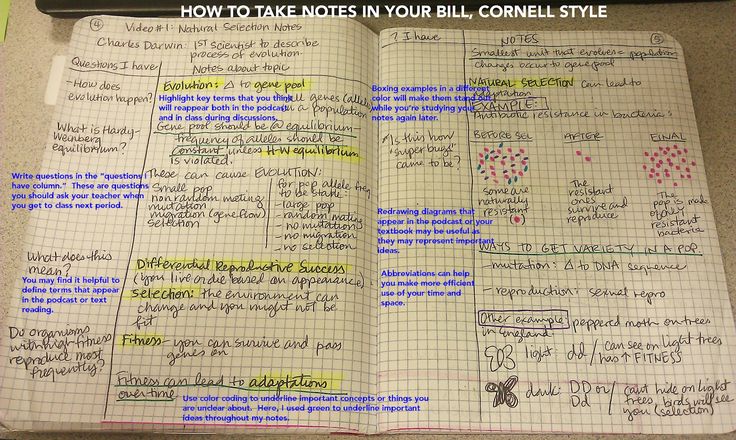 HOW TO TAKE NOTES IN YOUR BILL, CORNELL STYLE
④
Video #1: Natural Selection Notes
Charles Darwin: 1ST scientist to describe
process of evolution.
Questions I have
Notes about topic
- How does
evolution happen?
What is Hardy-
Weinberg
equilibrium?
Evolution: Δ to gene pool
Highlight key terms that you think
will reappear both in the podcast
and in class during discussions.
all genes (alleles)
in a population
Gene pool should be @ equilibrium-
frequency of alleles should be
constant unless H-W equilibrium
is violated.
Write questions in the "questions I
have column." These are questions
you should ask your teacher when
you get to class next period.
These can cause EVOLUTION:
Small pop
non random mating
mutation
migration (gene flow)
selection
for pop allele freq
to be stable
-large pop
-random mating
-no mutation
-no migration
-no selection
What does this
mean?
You may find it helpful to
define terms that appear
in the podcast or text
reading.
Differential Reproductive Success
(you live or die based on appearance)
Selection: the environment can
change and you might not be
fit
Do organisms
with high fitness
reproduce most
frequently?
Fitness- you can survive and pass
genes on
Fitness can lead to adaptations
over time
Use color coding to underline important concepts or things you
are unclear about. Here, I used green to underline important
ideas throughout my notes.
? I have
NOTES
⑤
Smallest unit that evolves = population
changes occur to gene pool
NATURAL SELECTION can lead to
adaptation
Boxing examples in a different
color will make them stand out
while you're studying your
notes again later.
EXAMPLE:
Antibiotic resistance in bacteria
Is this how
"super bugs"
came to be?
BEFORE SEL
AFTER
FINAL
some are
naturally
resistant
The
resistant
ones
survive and
reproduce
The
pop is made
of only
resistant
bacteria
Redrawing diagrams that
appear in the podcast or your
textbook may be useful as
they may represent important
ideas.
Abbreviations can help
you make more efficient
use of your time and
space.
WAYS TO GET VARIETY IN A POP
-mutation: Δ to DNA sequence
-reproduction: sexual repro
Other example: peppered moth on trees
in England
light dd / can see on light trees
has ↑ FITNESS
dark: DD or Dd / can't hide on light
trees, birds will see
you (selection)